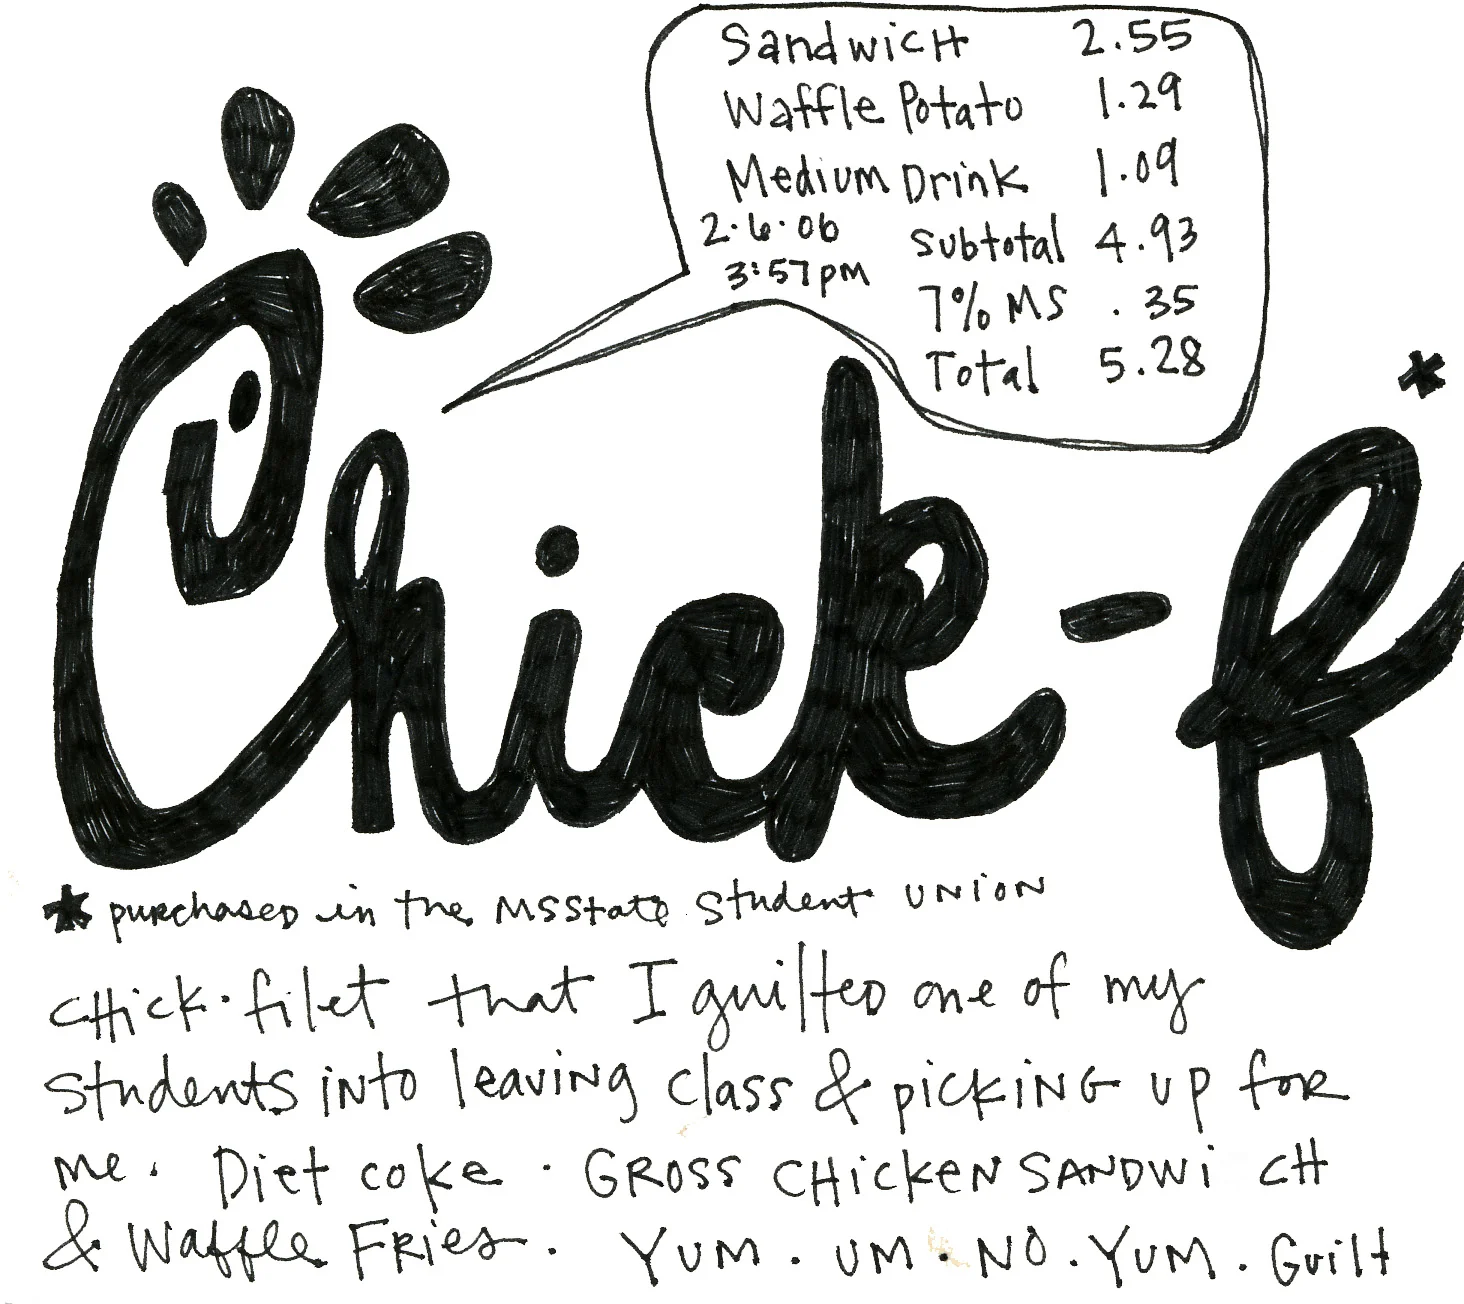 Sandwich 2.55
Waffle Potato 1.29
Medium Drink 1.09
2·6·06 Subtotal 4.93
3:57pm 7% MS .35
Total 5.28
*
Chick-f
* purchased in the MSState Student UNION
CHick·filet that I guilted one of my
Students into leaving class & picking up for
me. Diet coke · GROSS CHickeN SANDWiCH
& Waffle FRies. YUM. UM. NO. YUM. Guilt